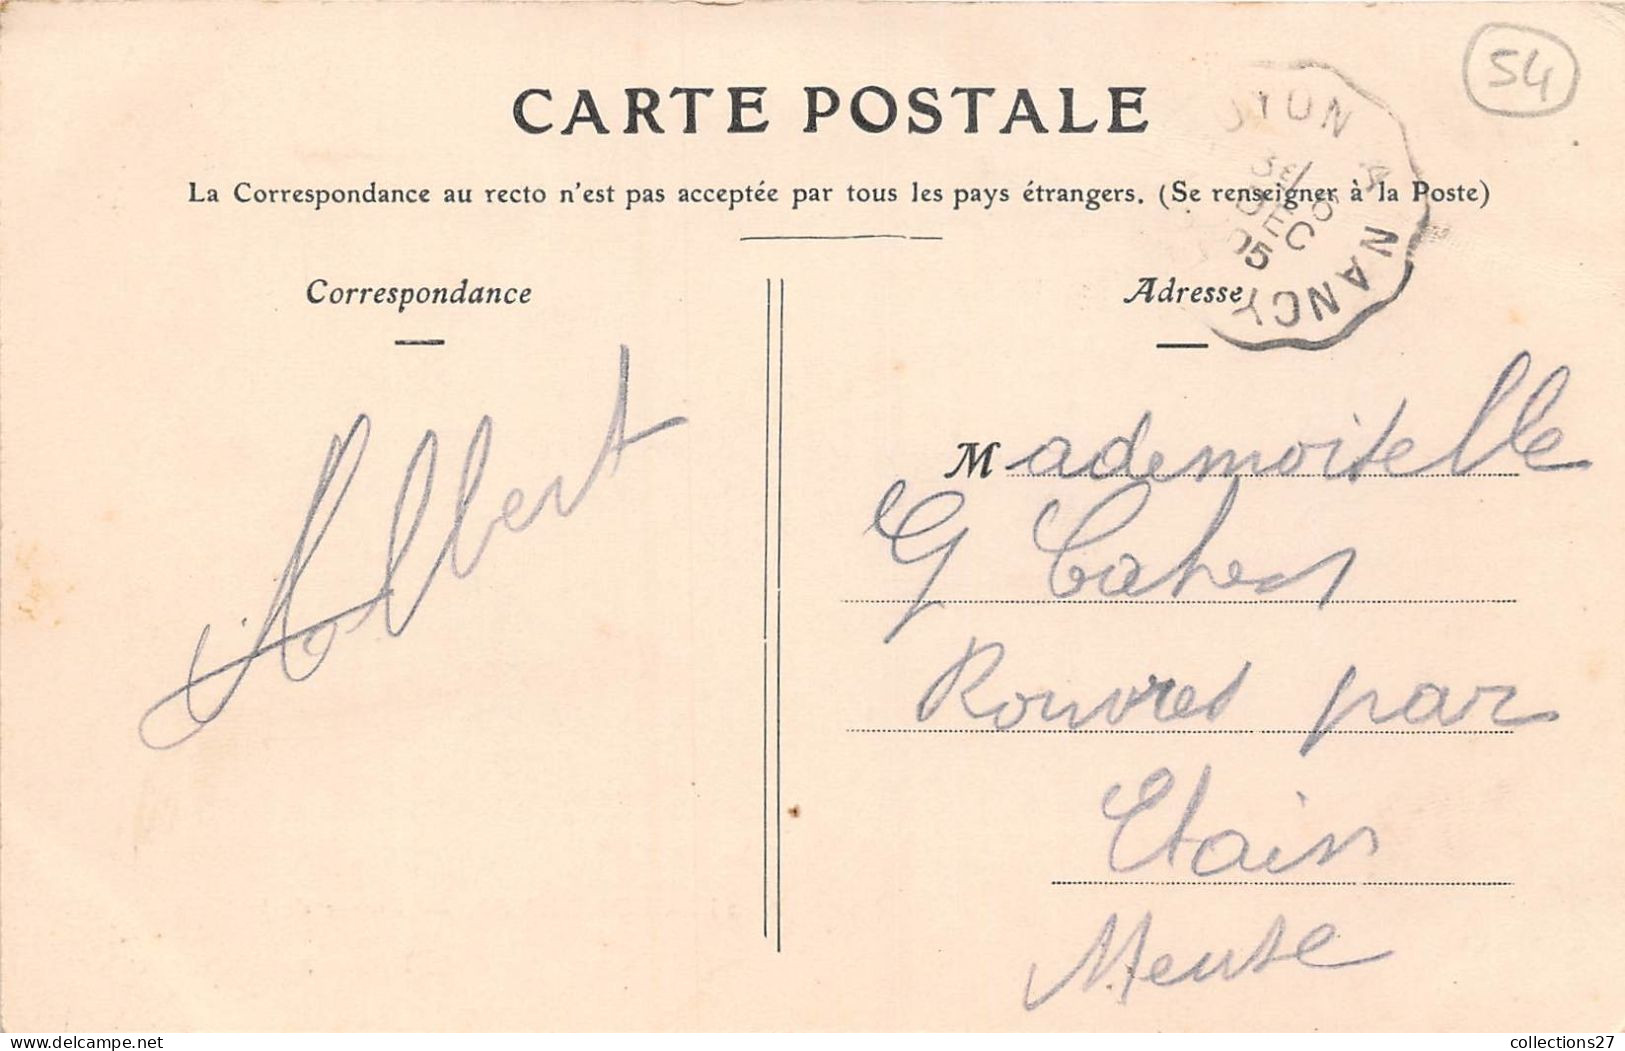 54
CARTE POSTALE
La Correspondance au recto n'est pas acceptée par tous les pays étrangers. (Se renseigner à la Poste)
Correspondance
Adresse
A NANCY
DEC
05
Albert
Mademoiselle
G Cahen
Rouvres par
Etain
Meuse
collections27